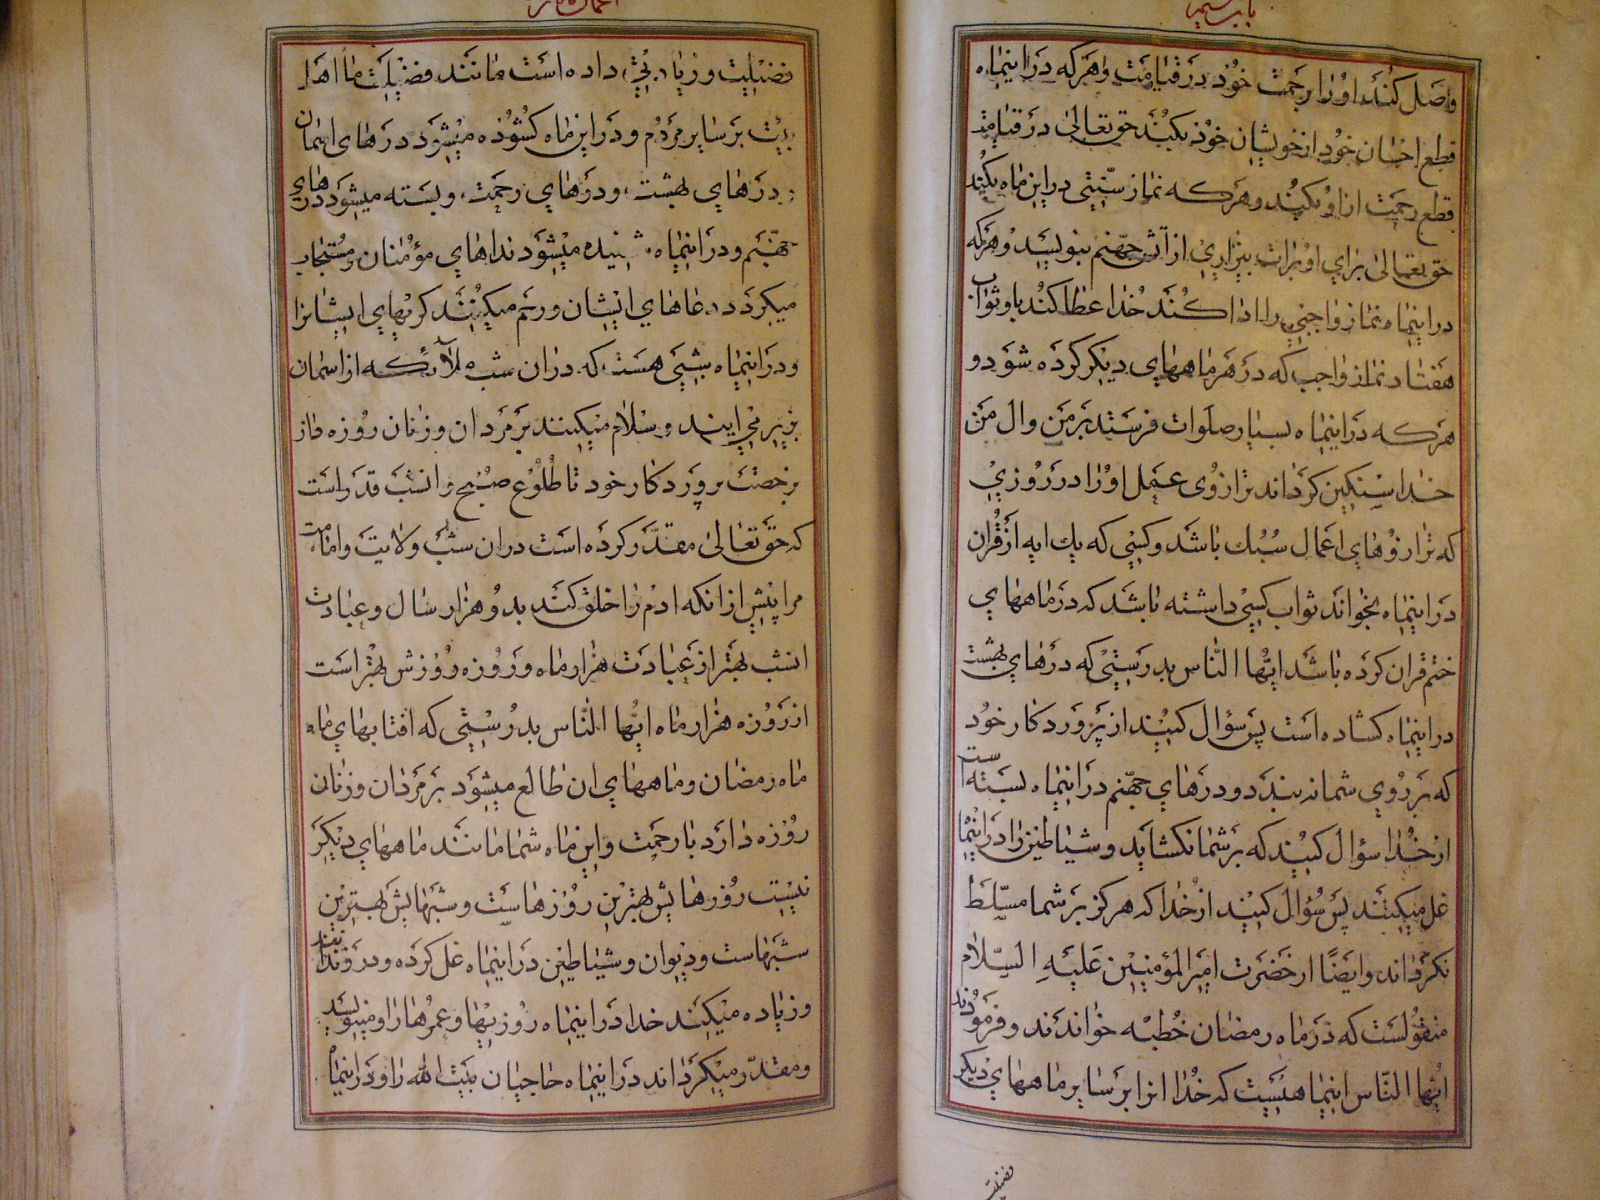 واصل کند او را برحمت خود در قیامت و هر که در اینماه
قطع احسان خود از خویشان خود بکند حق تعالی در قیامت
قطع رحمت از او بکند و هر که نماز سنّتی در این ماه بکند
حق تعالی برای او برات بیزاری از آتش جهنم بنویسد و هر که
در اینماه نماز واجبی را ادا کند خدا عطا کند باو ثواب
هفتاد نماز واجب که در هر ماههای دیکر کرده شود و
هر که در اینماه بسیار صلوات فرستد بر من و ال من
خدا سنکین کرداند ترازوی عمل او را در روزی
که ترازوهای اعمال سبک باشد و کسی که یک ایه از قران
در اینماه بخواند ثواب کسی داشته باشد که در ماههای
ختم قران کرده باشد ایّها النّاس بدرستی که درهای بهشت
در اینماه کشاده است پس سؤال کنید از پروردکار خود
که بر روی شما نه بندد و درهای جهنّم در اینماه بسته است
از خدا سؤال کنید که بر شما نکشاید و شیاطین را در اینماه
غل میکنند پس سؤال کنید از خدا که هرکز بر شما مسلّط
نکرداند و ایضًا از حضرت امیر المؤمنین علیه السّلام
منقولست که در ماه رمضان خطبه خواندند و فرمودند
ایّها النّاس اینماهیست که خدا انرا بر سایر ماههای دیکر
فضیلت
فضیلت و زیادتی داده است مانند فضیلت ما اهل
بیت بر سایر مردم و در این ماه کشوده میشود درهای اسمان
و درهای بهشت و درهای رحمت و بسته میشود درهای
جهنّم و در اینماه شنیده میشود نداهای مؤمنان و مستجاب
میکردد دعاهای ایشان و رحم میکنند کریهای ایشانرا
و در اینماه شبی هست که در ان شب ملآئکه از اسمان
بزیر می ایند و سلام میکنند بر مردان و زنان روزه دار
برخصت پروردکار خود تا طلوع صبح و انشب قدر است
که حق تعالی مقدّر کرده است در ان شب ولایت و امامت
مرا پیش از انکه ادم را خلق کند بدو هزار سال و عبادت
انشب بهتر از عبادت هزار ماه و روزه روزش بهتر است
از روزه هزار ماه ایّها النّاس بدرستی که افتابهای ماه
ماه رمضان و ماههای ان طالع میشود بر مردان و زنان
روزه دارد با رحمت و این ماه شما مانند ماههای دیکر
نیست روزهایش بهترین روزهاست و شبهایش بهترین
شبهاست و دیوان و شیاطین در اینماه غل کرده و در
و زیاده میکند خدا در اینماه روزیها و عمرها را و مینویسد
و مقدّر میکرداند در اینماه حاجیان بیت الله را و در اینماه